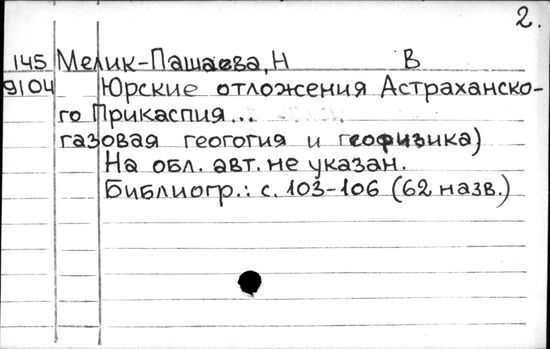 2.
145 Мелик-Пашаева, Н В
9104 Юрские отложения Астраханско-
го Прикаспия...
газовая геогогия и геофизика)
На обл. авт. не указан.
Библиогр.: с. 103-106 (62 назв.)